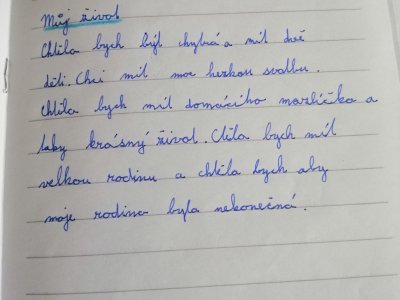 Můj život
Chtěla bych být chytrá a mít dvě
děti. Chci mít moc hezkou svatbu.
Chtěla bych mít domácího mazlíčka a
taky krásný život. Chtěla bych mít
velkou rodinu a chtěla bych aby
moje rodina byla nekonečná.